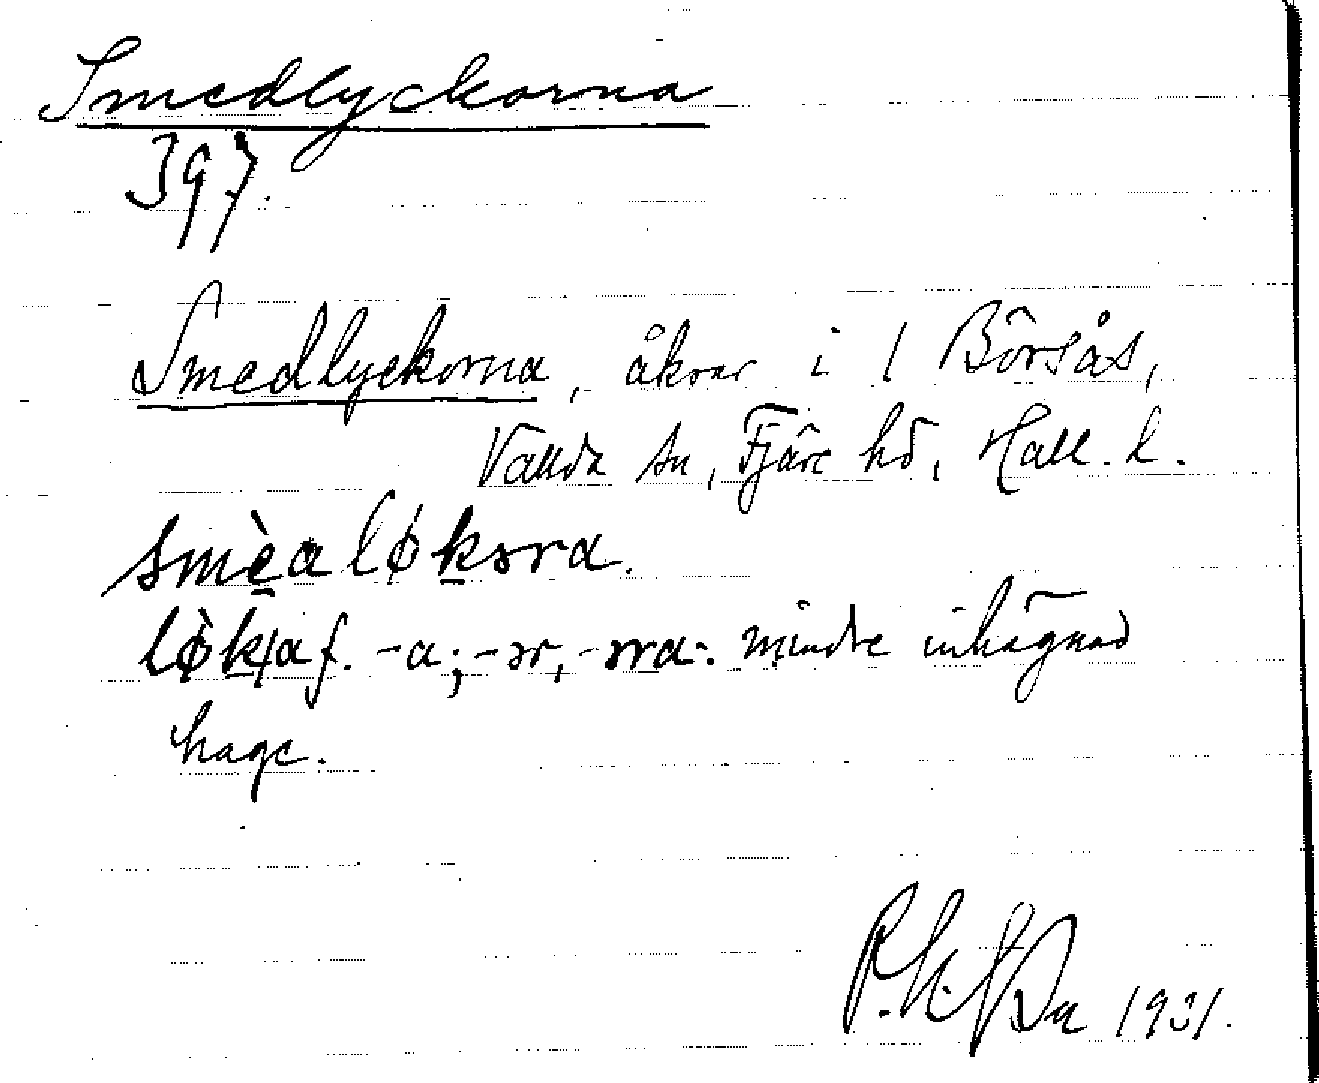 Smedlyckorna
397.
Smedlyckorna, åkrar i 1 Börsås,
Vallda sn, Fjäre hd, Hall. l.
smèaløkəra.
lø̀ka f. -a; -ər, -əra: mindre inhägnad
hage.
1931.